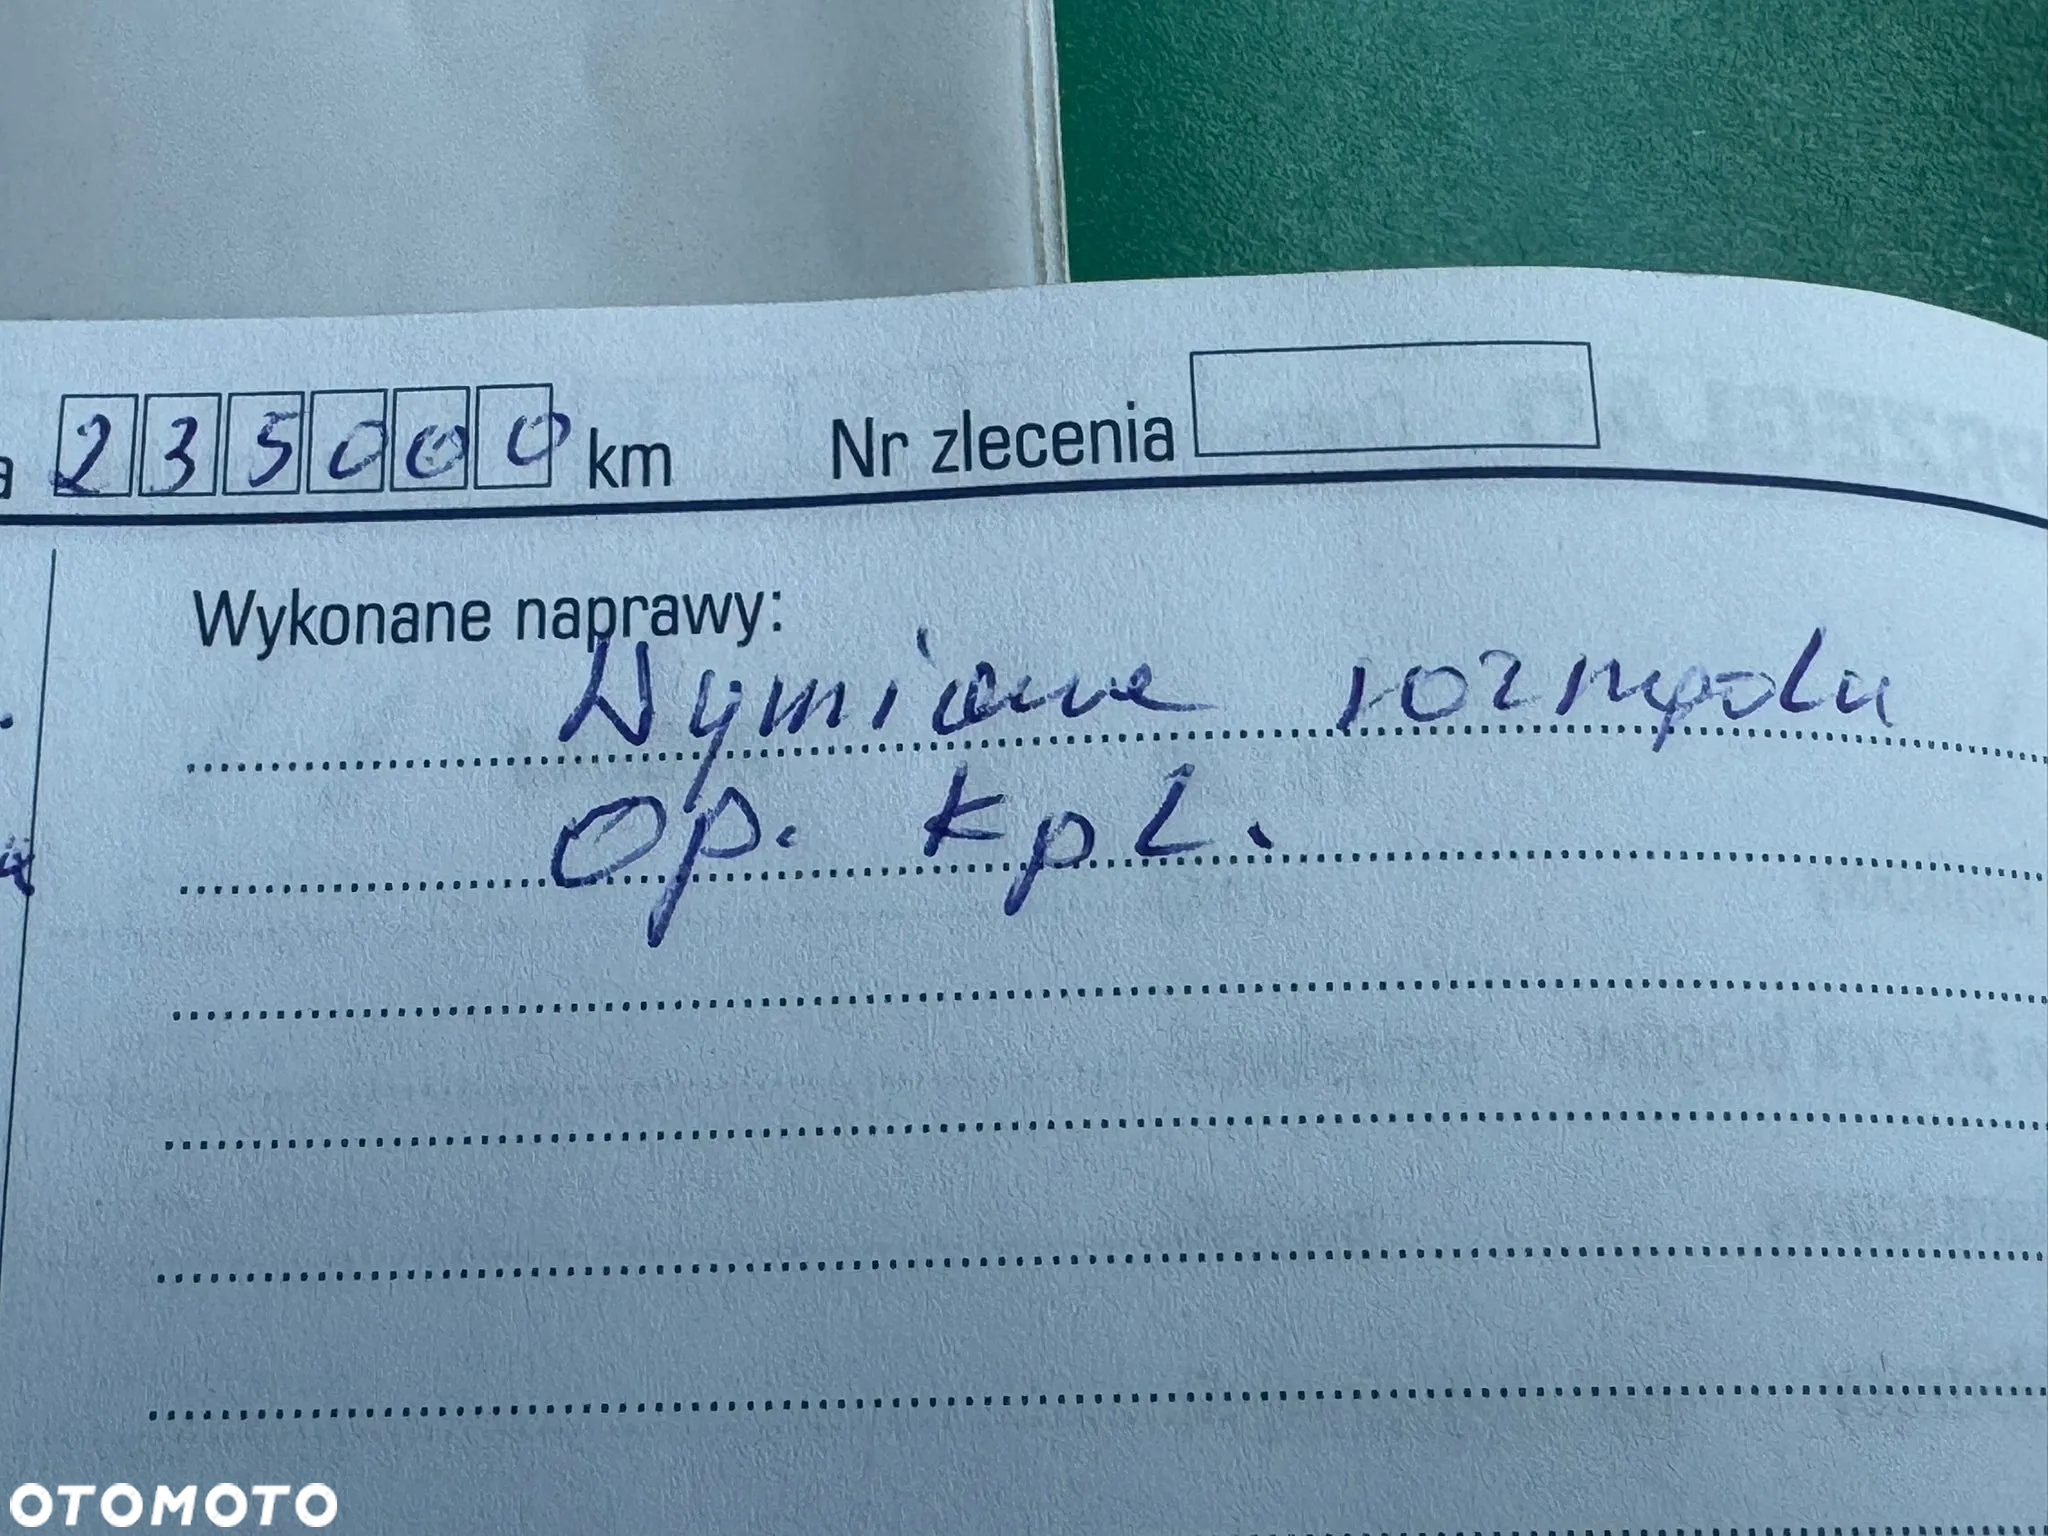 235000 km Nr zlecenia
Wykonane naprawy:
Wymiana rozrządu
Op. kpl.
OTOMOTO